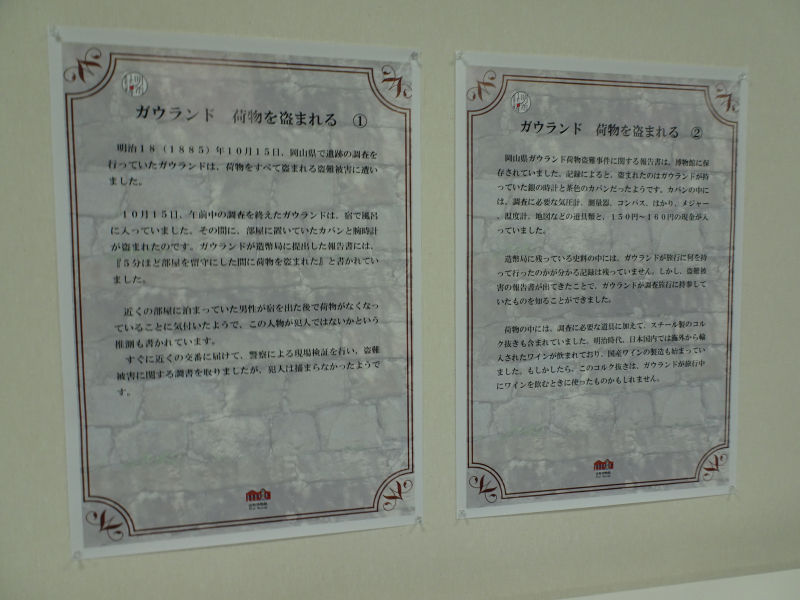 ガウランド 荷物を盗まれる ①
明治１８（１８８５）年１０月１５日、岡山県で遺跡の調査を
行っていたガウランドは、荷物をすべて盗まれる盗難被害に遭い
ました。
１０月１５日、午前中の調査を終えたガウランドは、宿で風呂
に入っていました。その間に、部屋に置いていたカバンと腕時計
が盗まれたのです。ガウランドが造幣局に提出した報告書には、
『５分ほど部屋を留守にした間に荷物を盗まれた』と書かれてい
ました。
近くの部屋に泊まっていた男性が宿を出た後で荷物がなくなっ
ていることに気付いたようで、この人物が犯人ではないかという
推測も書かれています。
すぐに近くの交番に届けて、警察による現場検証を行い、盗難
被害に関する調書を取りましたが、犯人は捕まらなかったようで
す。
ガウランド 荷物を盗まれる ②
岡山県ガウランド荷物盗難事件に関する報告書は、博物館に保
存されていました。記録によると、盗まれたのはガウランドが持
っていた銀の時計と茶色のカバンだったようです。カバンの中に
は、調査に必要な気圧計、測量器、コンパス、はかり、メジャー
、温度計、地図などの道具類と、１５０円～１６０円の現金が入
っていました。
造幣局に残っている史料の中には、ガウランドが旅行に何を持
って行ったのかが分かる記録は残っていません。しかし、盗難被
害の報告書が出てきたことで、ガウランドが調査旅行に持参して
いたものを知ることができました。
荷物の中には、調査に必要な道具に加えて、スチール製のコル
ク抜きも含まれていました。明治時代、日本国内では海外から輸
入されたワインが飲まれており、国産ワインの製造も始まってい
ました。もしかしたら、このコルク抜きは、ガウランドが旅行中
にワインを飲むときに使ったものかもしれません。